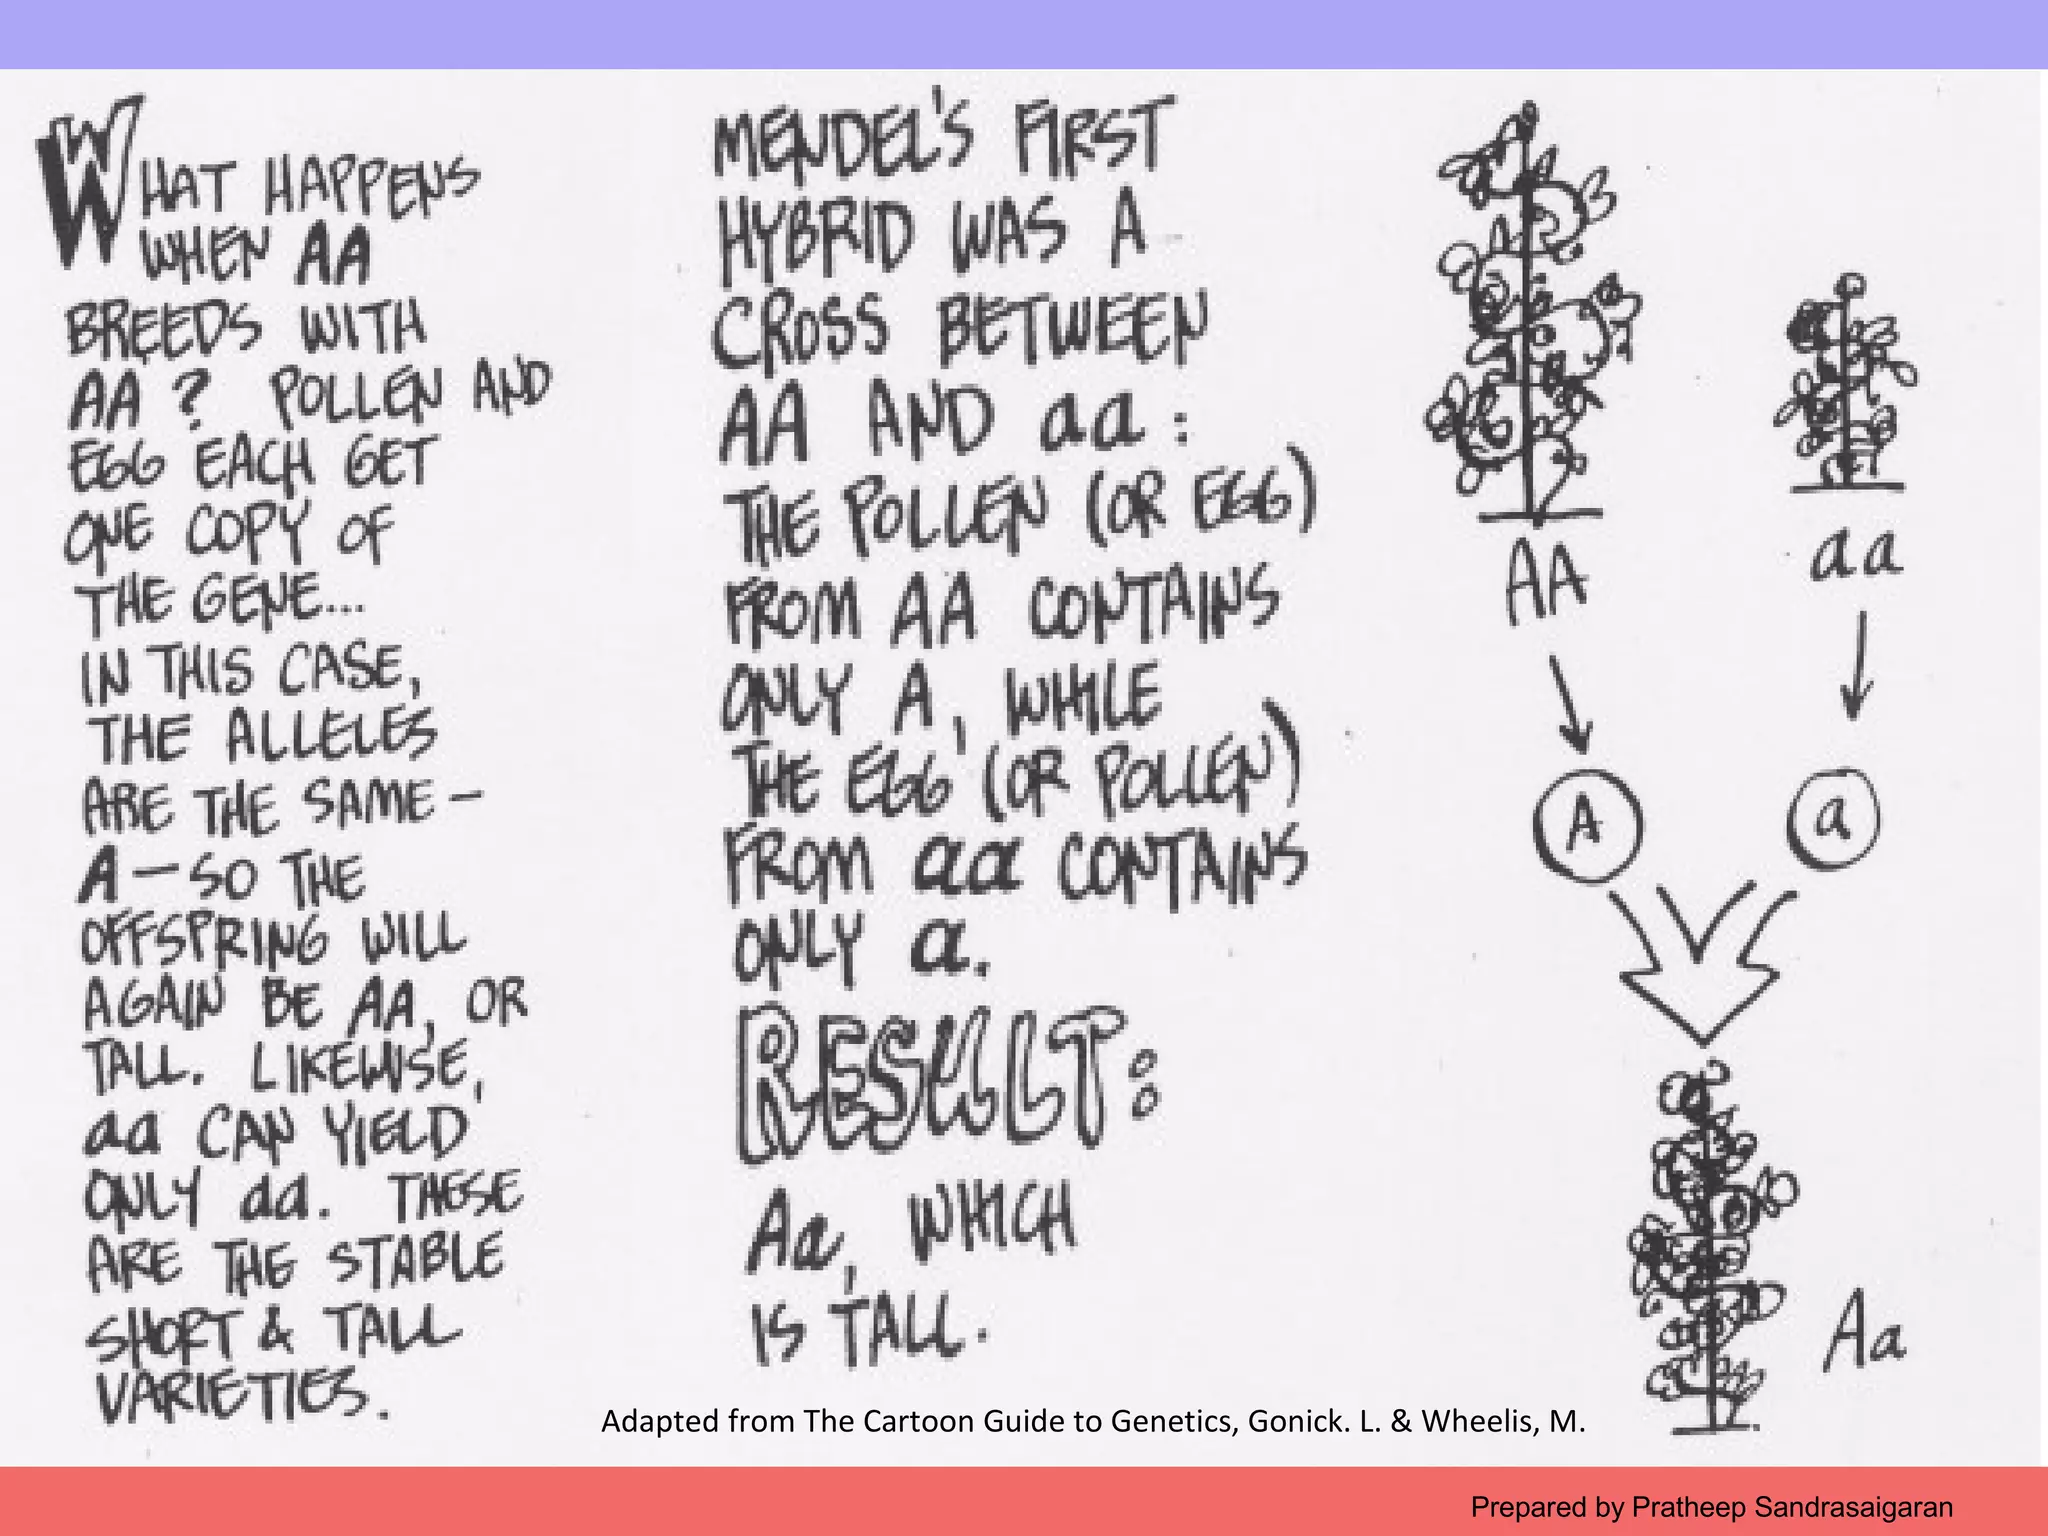 WHAT HAPPENS
WHEN AA
BREEDS WITH
AA? POLLEN AND
EGG EACH GET
ONE COPY OF
THE GENE...
IN THIS CASE,
THE ALLELES
ARE THE SAME—
A—SO THE
OFFSPRING WILL
AGAIN BE AA, OR
TALL. LIKEWISE,
aa CAN YIELD
ONLY aa. THESE
ARE THE STABLE
SHORT & TALL
VARIETIES.
MENDEL'S FIRST
HYBRID WAS A
CROSS BETWEEN
AA AND aa:
THE POLLEN (OR EGG)
FROM AA CONTAINS
ONLY A, WHILE
THE EGG (OR POLLEN)
FROM aa CONTAINS
ONLY a.
RESULT:
Aa, WHICH
IS TALL.
AA
aa
A
a
Aa
Adapted from The Cartoon Guide to Genetics, Gonick. L. & Wheelis, M.
Prepared by Pratheep Sandrasaigaran